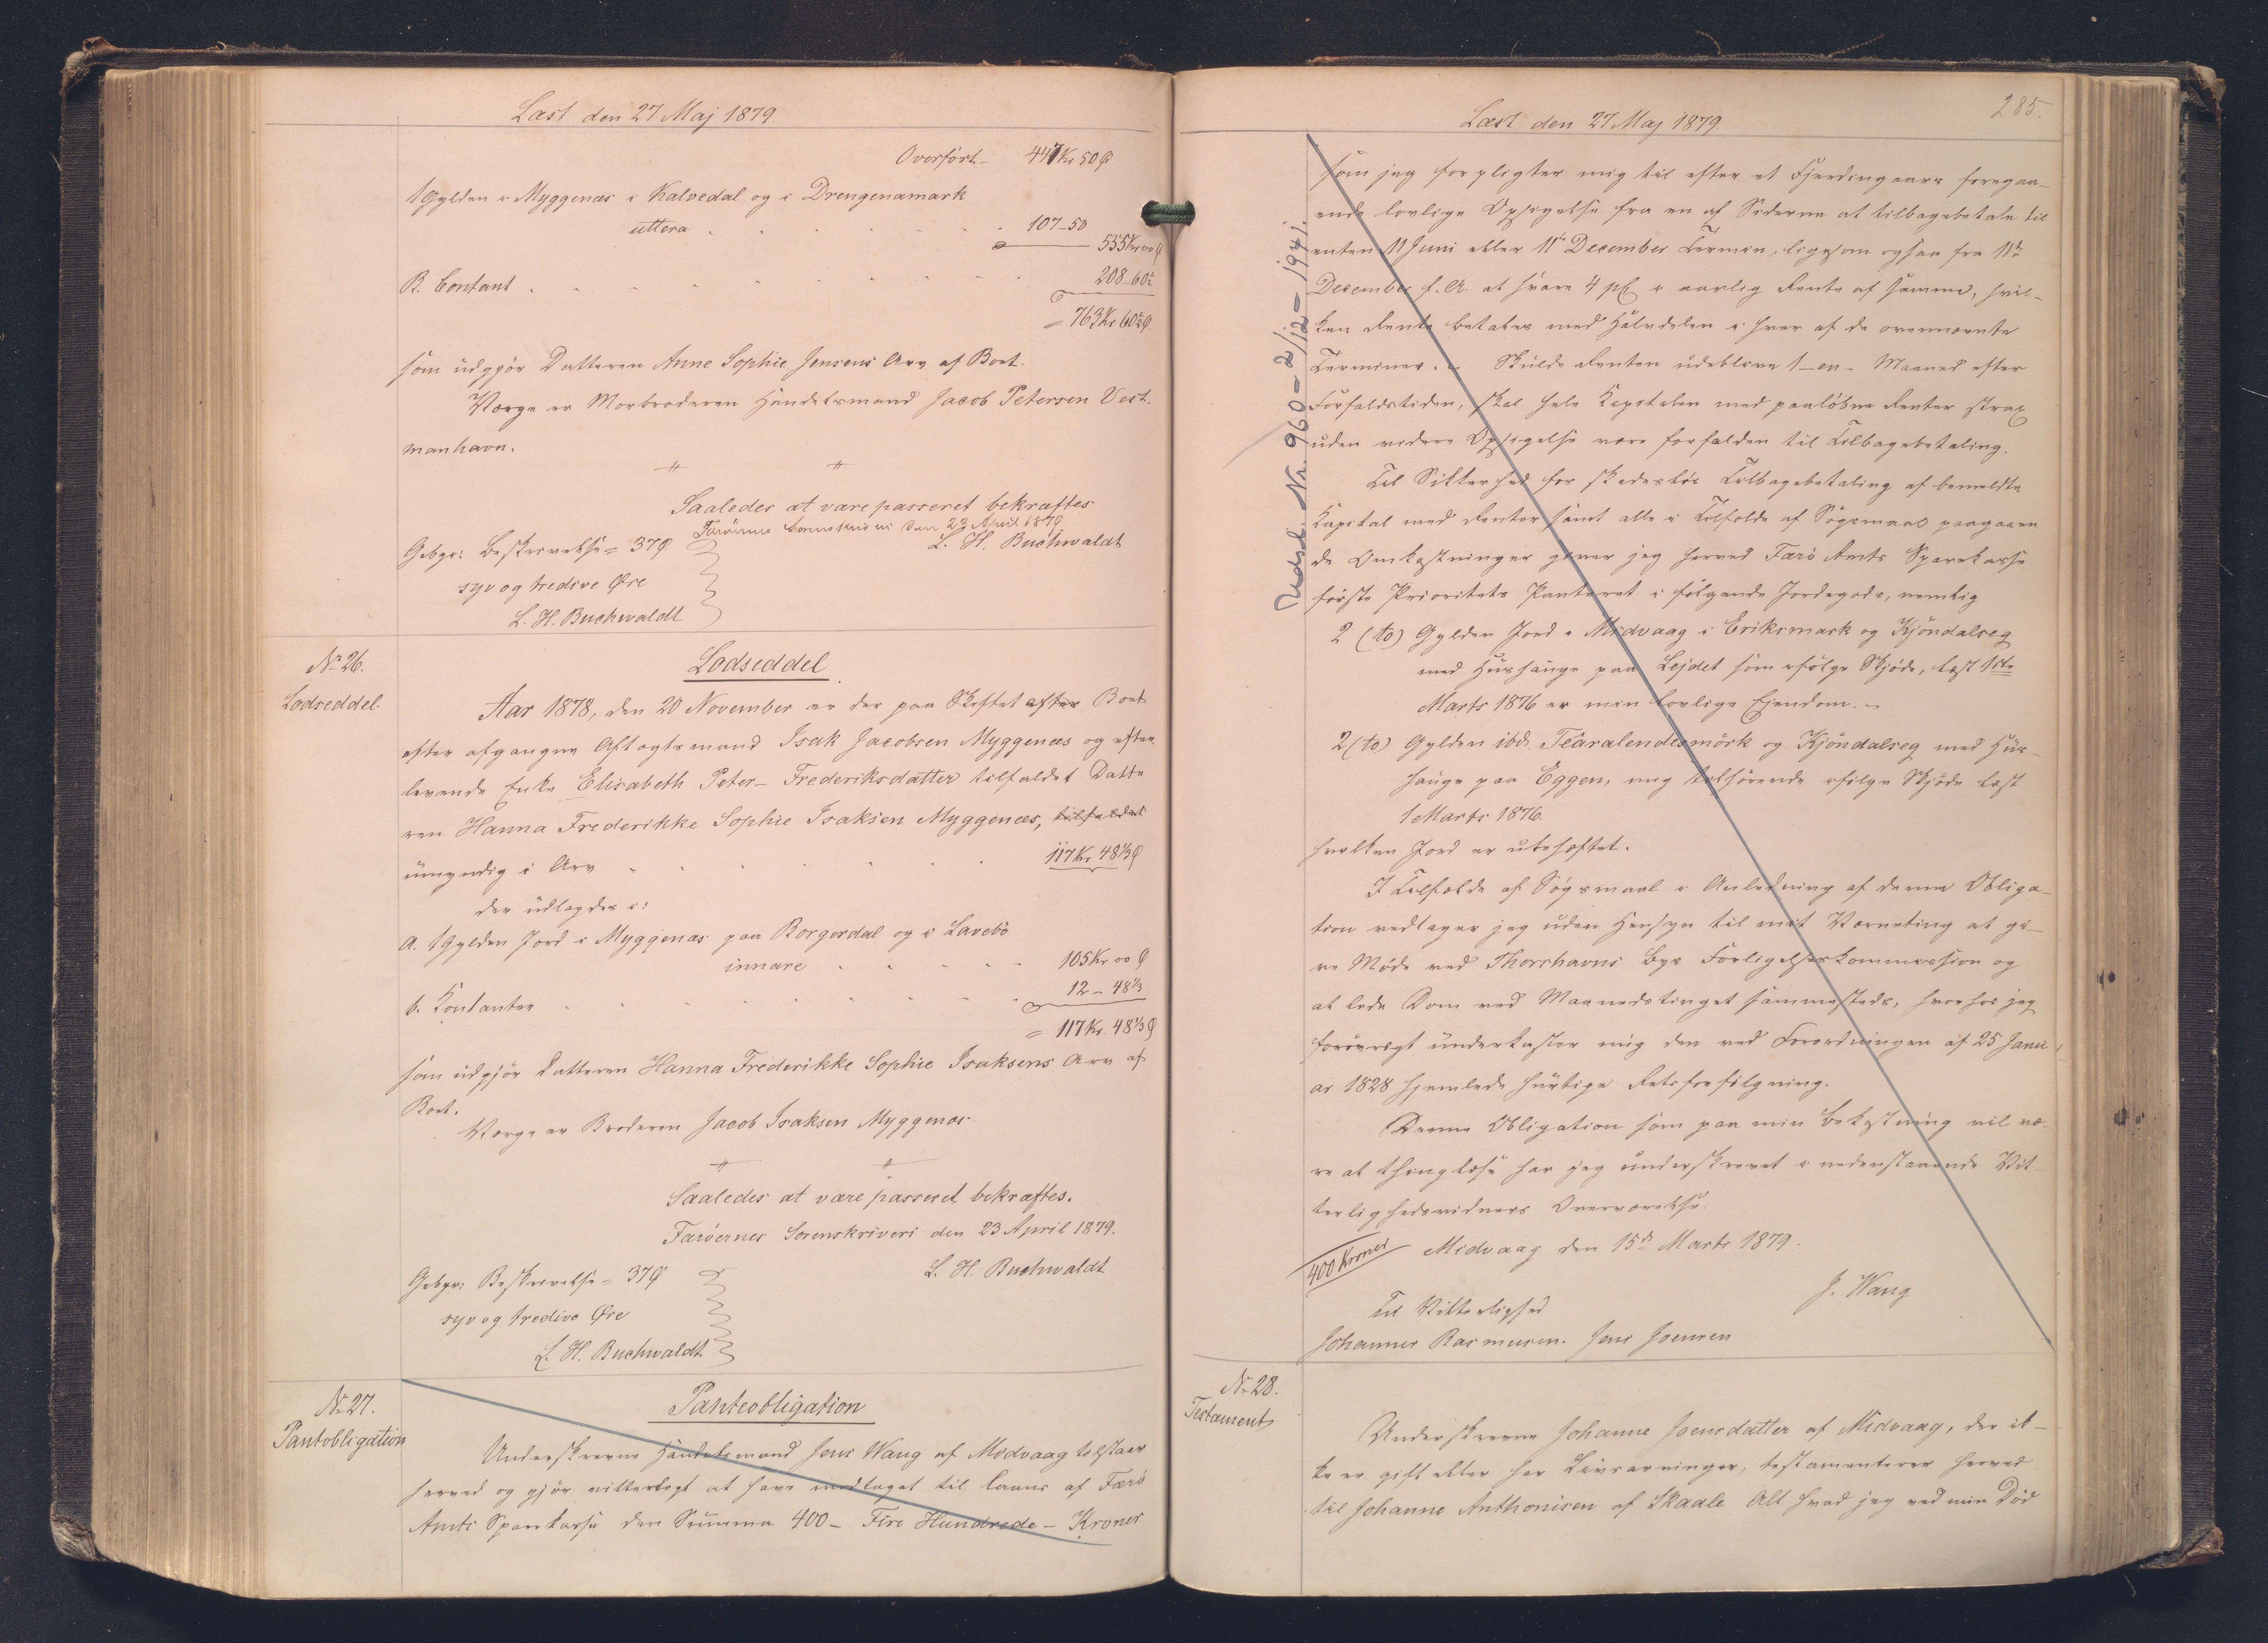 Læst den 27 Maj 1879.
Overført 447 Kr 50 Ø
1 Gylden i Myggenæs i Kalvedal og i Drengenamark
uttera 107-50
555 Kr 00 Ø
B. Contant 208-60½
= 763 Kr 60½ Ø.
som udgjør Datteren Anne Sophie Jensens Arv af Boet.
Værge er Morbroderen Handelsmand Jacob Petersen Vest-
manhavn.
Saaledes at være passeret bekræftes
Færøernes Sorenskriveri den 23 April 1879.
Gebyr: Beskrivelse = 37 Ø L. H. Buchwaldt
syv og tredive Øre
L. H. Buchwaldt
No 26.
Lodseddel.
Lodseddel
Aar 1878, den 20 November er der paa Skiftet after Boet
efter afgangne Aftægtsmand Isak Jacobsen Myggenæs og efter
levende Enke Elisabeth Peter-Frederiksdatter tilfaldet Datte
ren Hanna Frederikke Sophie Isaksen Myggenæs, tilfaldet
umyndig i Arv 117 Kr 48⅓ Ø
der udlagdes i:
A. 1 Gylden Jord i Myggenæs paa Borgerdal og i Lavebø
innare 105 Kr 00 Ø
b. Kontanter 12-48⅓
= 117 Kr. 48⅓ Ø
som udgjør Datteren Hanna Frederikke Sophie Isaksens Arv af
Boet.
Værge er Broderen Jacob Isaksen Myggenæs.
Saaledes at være passeret bekræftes.
Færøernes Sorenskriveri den 23 April 1879.
Gebyr: Beskrivelse = 37 Ø L. H. Buchwaldt
syv og tredive Øre
L. H. Buchwaldt
No 27.
Pantobligation
Panteobligation
Underskrevne Handelsmand Jens Wang af Midvaag tilstaar
herved og gjør vitterligt at have modtaget til Laans af Færø
Amts Sparekasse den Summa 400 - Fire Hundrede - Kroner
285.
Læst den 27 Maj 1879.
som jeg forpligter mig til efter et Fjerdingaars foregaa-
ende lovlige Opsigelse fra en af Siderne at tilbagebetale til
enten 11 Juni eller 11te December Termin, ligesom ogsaa fra 11te
December f. A. at svare 4 pC i aarlig Rente af samme, hvil-
ken Rente betales med Halvdelen i hver af de ovennævnte
Terminer. Skulde Renten udeblive 1-en- Maaned efter
Forfaldstiden, skal hele Kapitalen med paaløbne Renter strax
uden videre Opsigelse være forfalden til Tilbagebetaling.
Til Sikkerhed for skadesløs Tilbagebetaling af bemeldte
Kapital med Renter samt alle i Tilfælde af Søgsmaal paagaaen
de Omkostninger giver jeg herved Færø Amts Sparekasse
første Prioritets Panteret i følgende Jordegods, nemlig
2 (to) Gylden Jord i Midvaag i Eriksmark og Kjøndalseg
med Hushauge paa Lejdet som ifølge Skjøde, læst 1ste
Marts 1876 er min lovlige Ejendom.
2 (to) Gylden ibd. Tearalendesmørk og Kjøndalseg med Hus-
hauge paa Eggen, mig tilhørende ifølge Skjøde læst
1 Marts 1876.
hvilken Jord er ubehæftet.
I Tilfælde af Søgsmaal i Anledning af denne Obliga-
tion vedtager jeg uden Hensyn til mit Værneting at gi-
ve Møde ved Thorshavns Byes Forligelseskommission og
at lide Dom ved Maanedstinget sammesteds, hvorhos jeg
forøvrigt underkaster mig den ved Forordningen af 25 Janu
ar 1828 hjemlede hurtige Retsforfølgning.
Denne Obligation som paa min Bekostning vil væ-
re at thinglæse har jeg underskrevet i nedenstaaende Vit-
terlighedsvidners Overværelse.
400 Kroner Midvaag den 15de Marts 1879.
J. Wang
Til Vitterlighed
Johannes Rasmusen. Jens Joensen
Udsl. Nr. 960 - 2/12 - 1941.
No 28.
Testament
Underskrevne Johanne Joensdatter af Midvaag, der ik-
ke er gift eller har Livsarvinger, testamenterer herved
til Johanne Anthonisen af Skaale Alt hvad jeg ved min Død